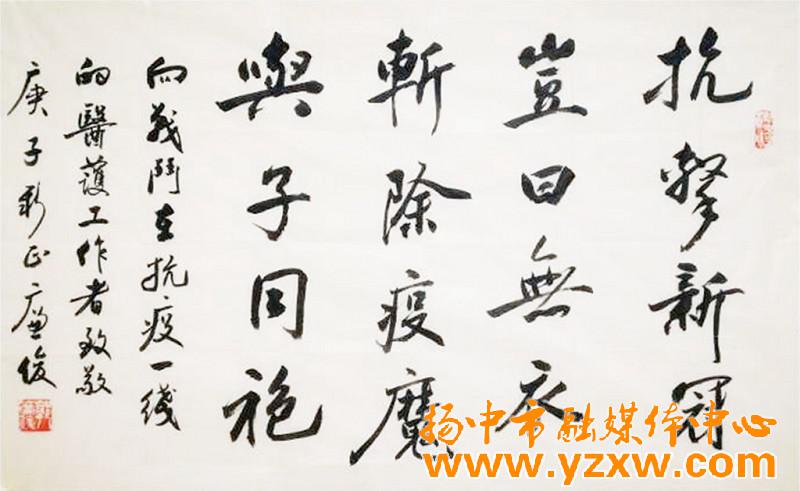 抗擊新冠
豈曰無衣
斬除疫魔
與子同袍
向战鬥在抗疫一线
的醫護工作者致敬
庚子新正廉俊
扬中市融媒体中心
www.yzxw.com